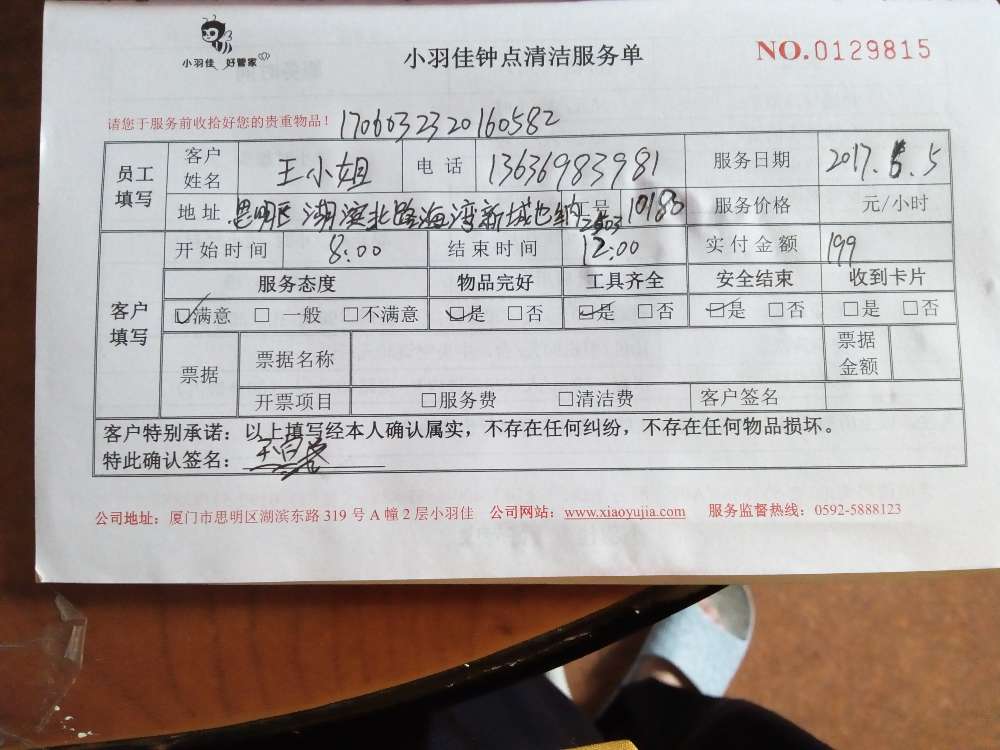 小羽佳 好管家
小羽佳钟点清洁服务单
NO.0129815
请您于服务前收拾好您的贵重物品！ 1706032320160582
员工填写 客户姓名 王小姐 电话 13636983981 服务日期 2017.6.5
地址 思明区湖滨北路海湾新城 2503 工号 10183 服务价格 元/小时
开始时间 8:00 结束时间 12:00 实付金额 199
客户填写 服务态度 物品完好 工具齐全 安全结束 收到卡片
☑满意 □一般 □不满意 ☑是 □否 ☑是 □否 ☑是 □否 □是 □否
票据 票据名称 票据金额
开票项目 □服务费 □清洁费 客户签名
客户特别承诺：以上填写经本人确认属实，不存在任何纠纷，不存在任何物品损坏。
特此确认签名：
公司地址：厦门市思明区湖滨东路 319 号 A 幢 2 层小羽佳 公司网站：www.xiaoyujia.com 服务监督热线：0592-5888123